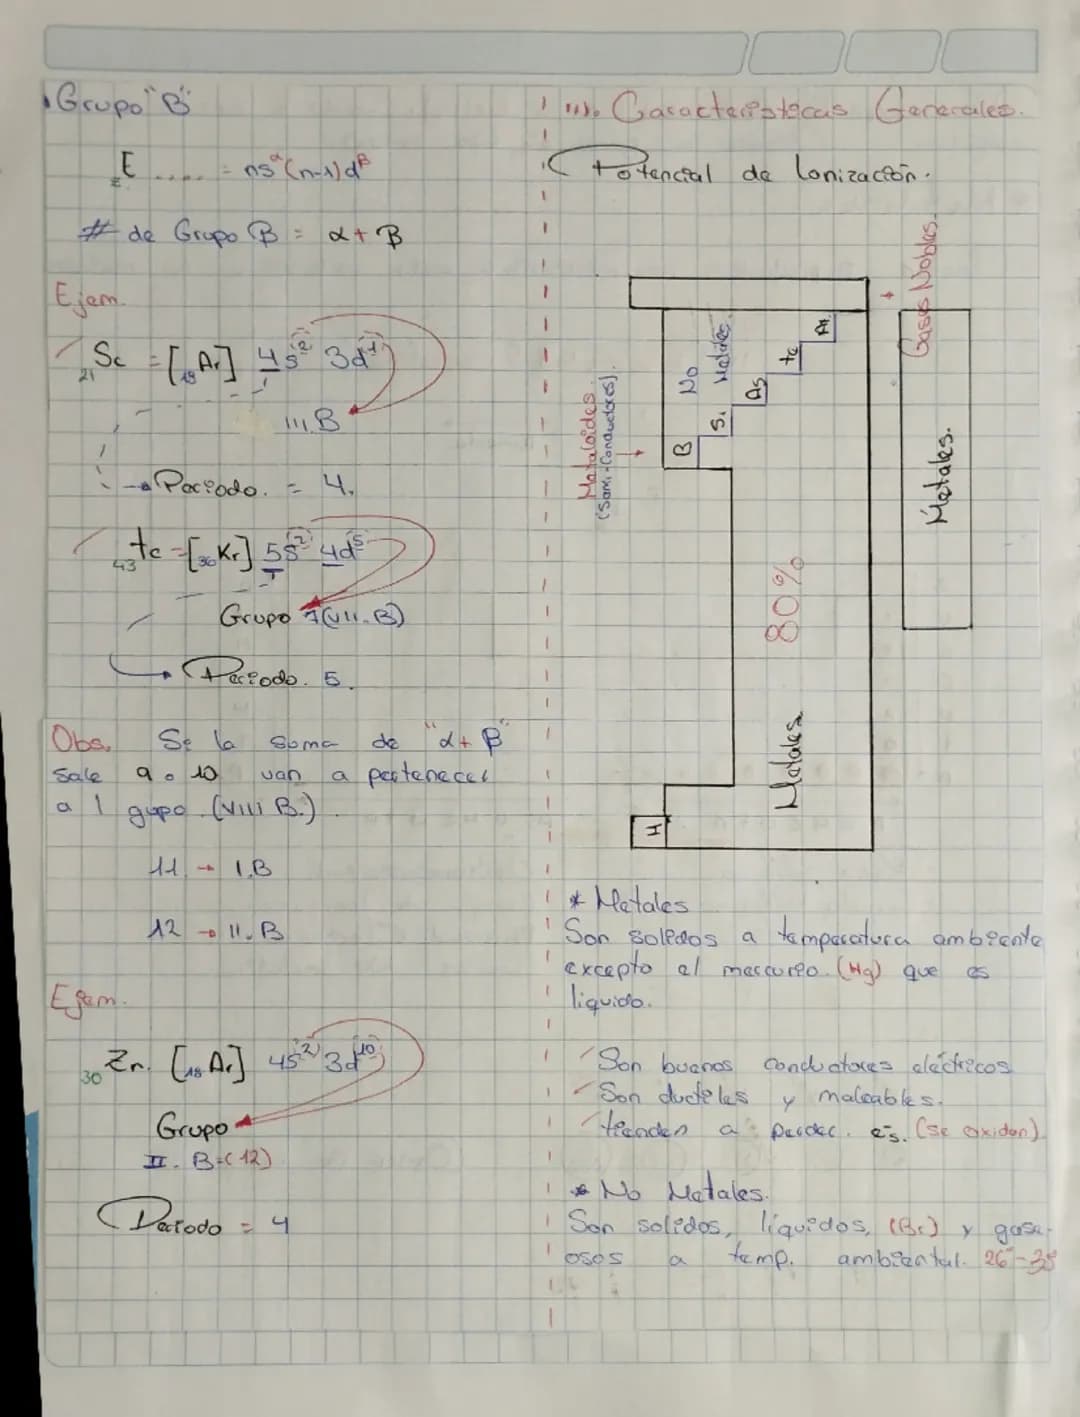 Grupo "B"
zE ..... = ns^α (n-1)d^β
# de Grupo B = α + β
Ejem.
21Sc = [18Ar] 4s² 3d¹
III.B
Periodo. = 4.
43tc = [36Kr] 5s² 4d⁵
Grupo 7(VII.B)
Periodo. 5.
Obs. Si la suma de "α + β"
Sale 9 o 10 van a pertenecer
a 1 gupo (VIII B.)
11 → I.B
12 → II.B
Ejem.
30Zn. [18Ar] 4s² 3d¹⁰
Grupo
II. B=(12)
Periodo = 4
III. Caracteristicas Generales.
Potencial de Ionización.
Gases Nobles.
No Metales.
Metaloides.
(Sami-Conductores).
B
Si
As
te
At
Metales.
80%
Metales
H
* Metales
Son solidos a temperatura ambiente
excepto el mercurio. (Hg) que es
liquido.
Son buenos conductores eléctricos
Son ductiles y maleables.
tienden a perder. e-s. (se oxidan)
* No Metales.
Son solidos, líquidos, (Br) y gase-
osos a temp. ambiental. 26°-38